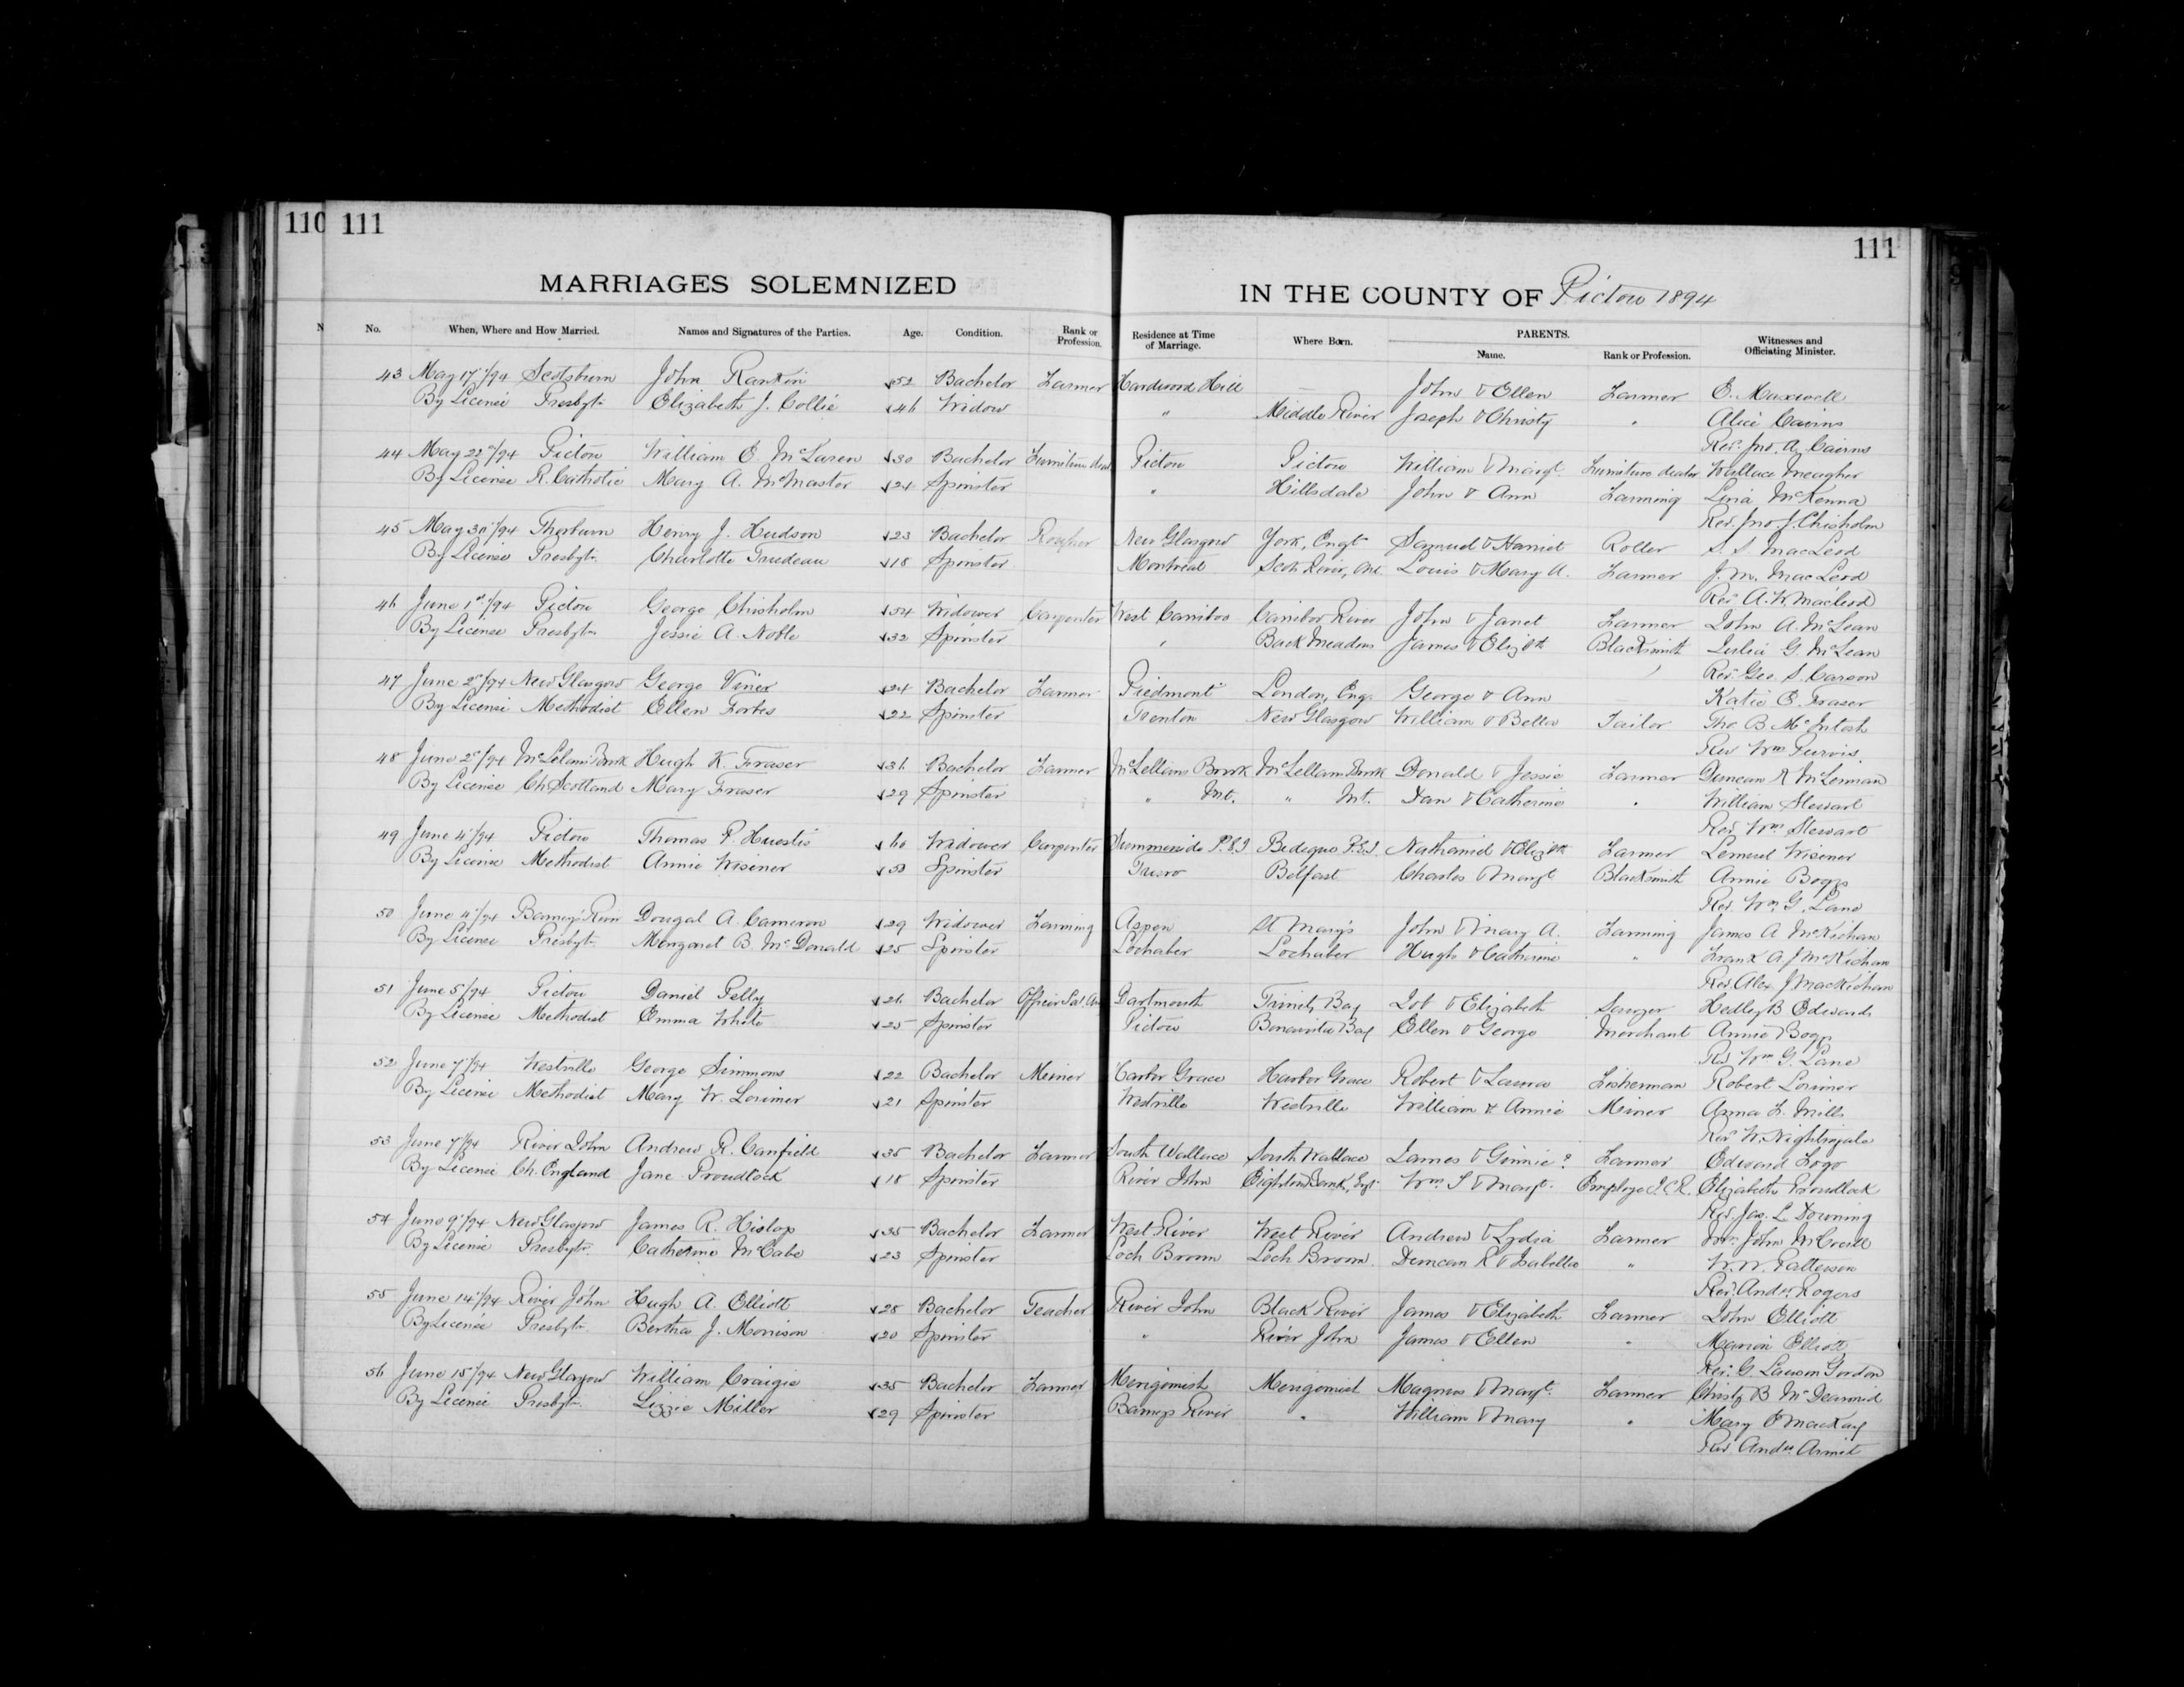 110 111
111
MARRIAGES SOLEMNIZED
IN THE COUNTY OF Pictou 1894
No. When, Where and How Married. Names and Signatures of the Parties. Age. Condition. Rank or Profession. Residence at Time of Marriage. Where Born. PARENTS. Name. Rank or Profession. Witnesses and Officiating Minister.
43 May 17/94 Scotsburn John Rankin 52 Bachelor Farmer Hardwood Hill — John & Ellen Farmer E. Maxwell
By License Presbytn Elizabeth J. Collie 46 Widow " Middle River Joseph & Christy " Alice Cairns
Rev. Jno. A. Cairns
44 May 22/94 Pictou William E. McLaren 30 Bachelor Furniture deal Pictou Pictou William & Margt. Furniture dealer Wallace Meagher
By License R. Catholic Mary A. McMaster 24 Spinster " Hillsdale John & Ann Farming Lina McKenna
Rev. Jno. J. Chisholm
45 May 30/94 Thorburn Henry J. Hudson 23 Bachelor New Glasgow York, Engt Samuel & Harriet Roller S. S. MacLeod
By License Presbytn Charlotte Trudeau 18 Spinster Montreal Scotch River, Ont. Louis & Mary A. Farmer J. M. MacLeod
Rev A. W. Macleod
46 June 1st/94 Pictou George Chisholm 54 Widower Carpenter West Carriboo Carriboo River John & Janet Farmer John A. McLean
By License Presbytn Jessie A. Noble 32 Spinster " Back Meadows James & Elizbth Blacksmith Leslie G. McLean
Rev. Geo. S. Carson
47 June 2/94 New Glasgow George Viner 24 Bachelor Farmer Piedmont London, Eng. George & Ann Katie E. Fraser
By License Methodist Ellen Forbes 22 Spinster Trenton New Glasgow William & Bella Tailor Tho. B McIntosh
Rev Wm Purvis.
48 June 2/94 McLellans Brook Hugh K. Fraser 31 Bachelor Farmer McLellans Brook McLellans Brook Donald & Jessie Farmer Duncan R McLennan
By License Ch Scotland Mary Fraser 29 Spinster " Mt. " Mt. Dan & Catherine " William Stewart
Rev. Wm Stewart
49 June 4/94 Pictou Thomas P. Huestis 60 Widower Carpenter Summerside P.E.I Bedeque P.E.I. Nathaniel & Elizbth Farmer Lemuel Wisener
By License Methodist Annie Wisener 53 Spinster Truro Belfast Charles & Margt Blacksmith Annie Boggs
Rev. Wm. G. Lane
50 June 4/94 Barneys River Dougal A. Cameron 29 Widower Farming Aspen St Mary's John & Mary A. Farming James A McKichan
By License Presbytn Margaret B. McDonald 25 Spinster Lochaber Lochaber Hugh & Catherine " Frank A. J McKichan
Rev. Alex J. MacKichan
51 June 5/94 Pictou Daniel Pelly 26 Bachelor Officer Sal. Ar Dartmouth Trinity Bay Job & Elizabeth Hedley B Edwards
By License Methodist Emma White 25 Spinster Pictou Bonavista Bay Ellen & George Merchant Annie Boggs
Rev Wm G. Lane
52 June 7/94 Westville George Simmons 22 Bachelor Meiner Harbor Grace Harbor Grace Robert & Laura Fisherman Robert Lorimer
By License Methodist Mary W. Lorimer 21 Spinster Westville Westville William & Annie Miner Anna L. Mills
Rev. W. Nightingale
53 June 7/94 River John Andrew R. Canfield 35 Bachelor Farmer South Wallace South Wallace James & Ginnie? Farmer Edward Logo
By License Ch. England Jane Proudlock 18 Spinster River John Eighton Bank, Engt Wm S & Margt. Employe I.C.R. Elizabeth Proudlock
Rev. Jas. L Downing
54 June 9/94 New Glasgow James R. Hislop 35 Bachelor Farmer West River West River Andrew & Lydia Farmer Mrs. John McCreill
By License Presbytn Catherine McCabe 23 Spinster Loch Broom Loch Broom Duncan R & Isabella " W. W. Patterson
Rev. Andw Rogers
55 June 14/94 River John Hugh A. Elliott 28 Bachelor Teacher River John Black River James & Elizabeth Farmer John Elliott
By License Presbytn Bertha J. Morrison 20 Spinster " River John James & Ellen " Marion Elliott
Rev. G. Lawson Gordon
56 June 15/94 New Glasgow William Craigie 35 Bachelor Farmer Merigomish Merigomish Magnus & Margt. Farmer Christy B McDearmid
By License Presbytn Lizzie Miller 29 Spinster Barneys River " William & Mary " Mary E MacKay
Rev. Andw Armit